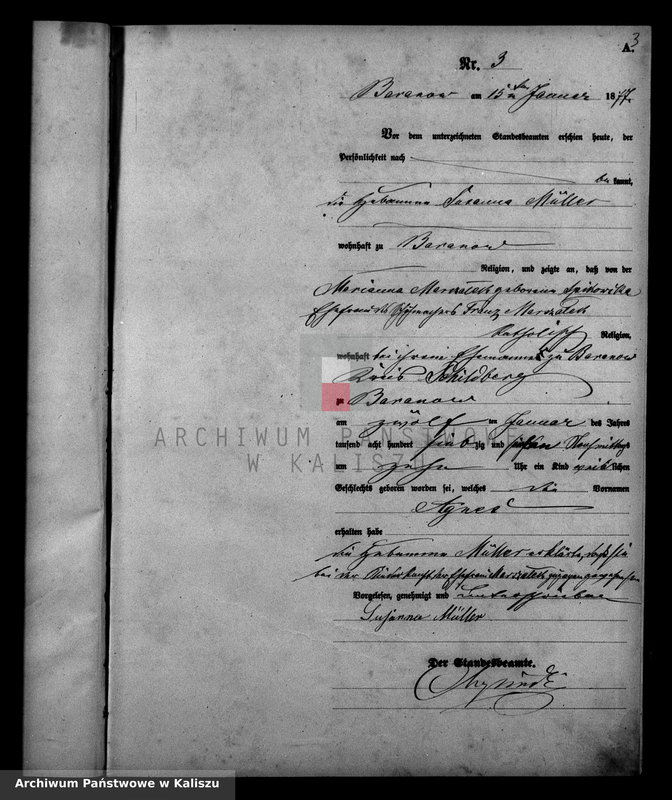 3
A.
Nr. 3
Baranow am 15ten Januar 1877.
Vor dem unterzeichneten Standesbeamten erschien heute, der
Persönlichkeit nach
be kannt,
die Hebamme Susanna Müller
wohnhaft zu Baranow
Religion, und zeigte an, daß von der
Marianna geborene
Ehefrau des Franz
katholisch Religion,
wohnhaft bei ihrem Ehemanne zu Baranow
Kreis Schildberg
zu Baranow
am zwölf ten Januar des Jahres
tausend acht hundert sieb zig und sieben
um zehn Uhr ein Kind weib lichen
Geschlechts geboren worden sei, welches den Vornamen
Agnes
erhalten habe
die Hebamme Müller erklärte, daß sie
bei der Niederkunft der Ehefrau zugegen gewesen
Vorgelesen, genehmigt und unterschrieben
Susanna Müller
Der Standesbeamte.
ARCHIWUM PAŃSTWOWE
W KALISZU
Archiwum Państwowe w Kaliszu